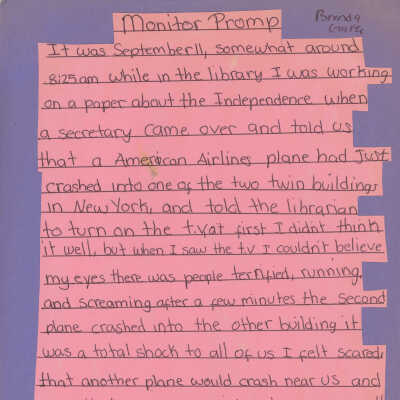 Monitor Promp
Brenda
It was September 11, somewhat around
8:25am while in the library I was working
on a paper about the Independence when
a secretary came over and told us
that a American Airlines plane had Just
crashed into one of the two twin buildings
in New York, and told the librarian
to turn on the t.v, at first I didn't think
it well, but when I saw the t.v I couldn't believe
my eyes there was people terrified, running,
and screaming after a few minutes the second
plane crashed into the other building it
was a total shock to all of us I felt scared,
that another plane would crash near us and